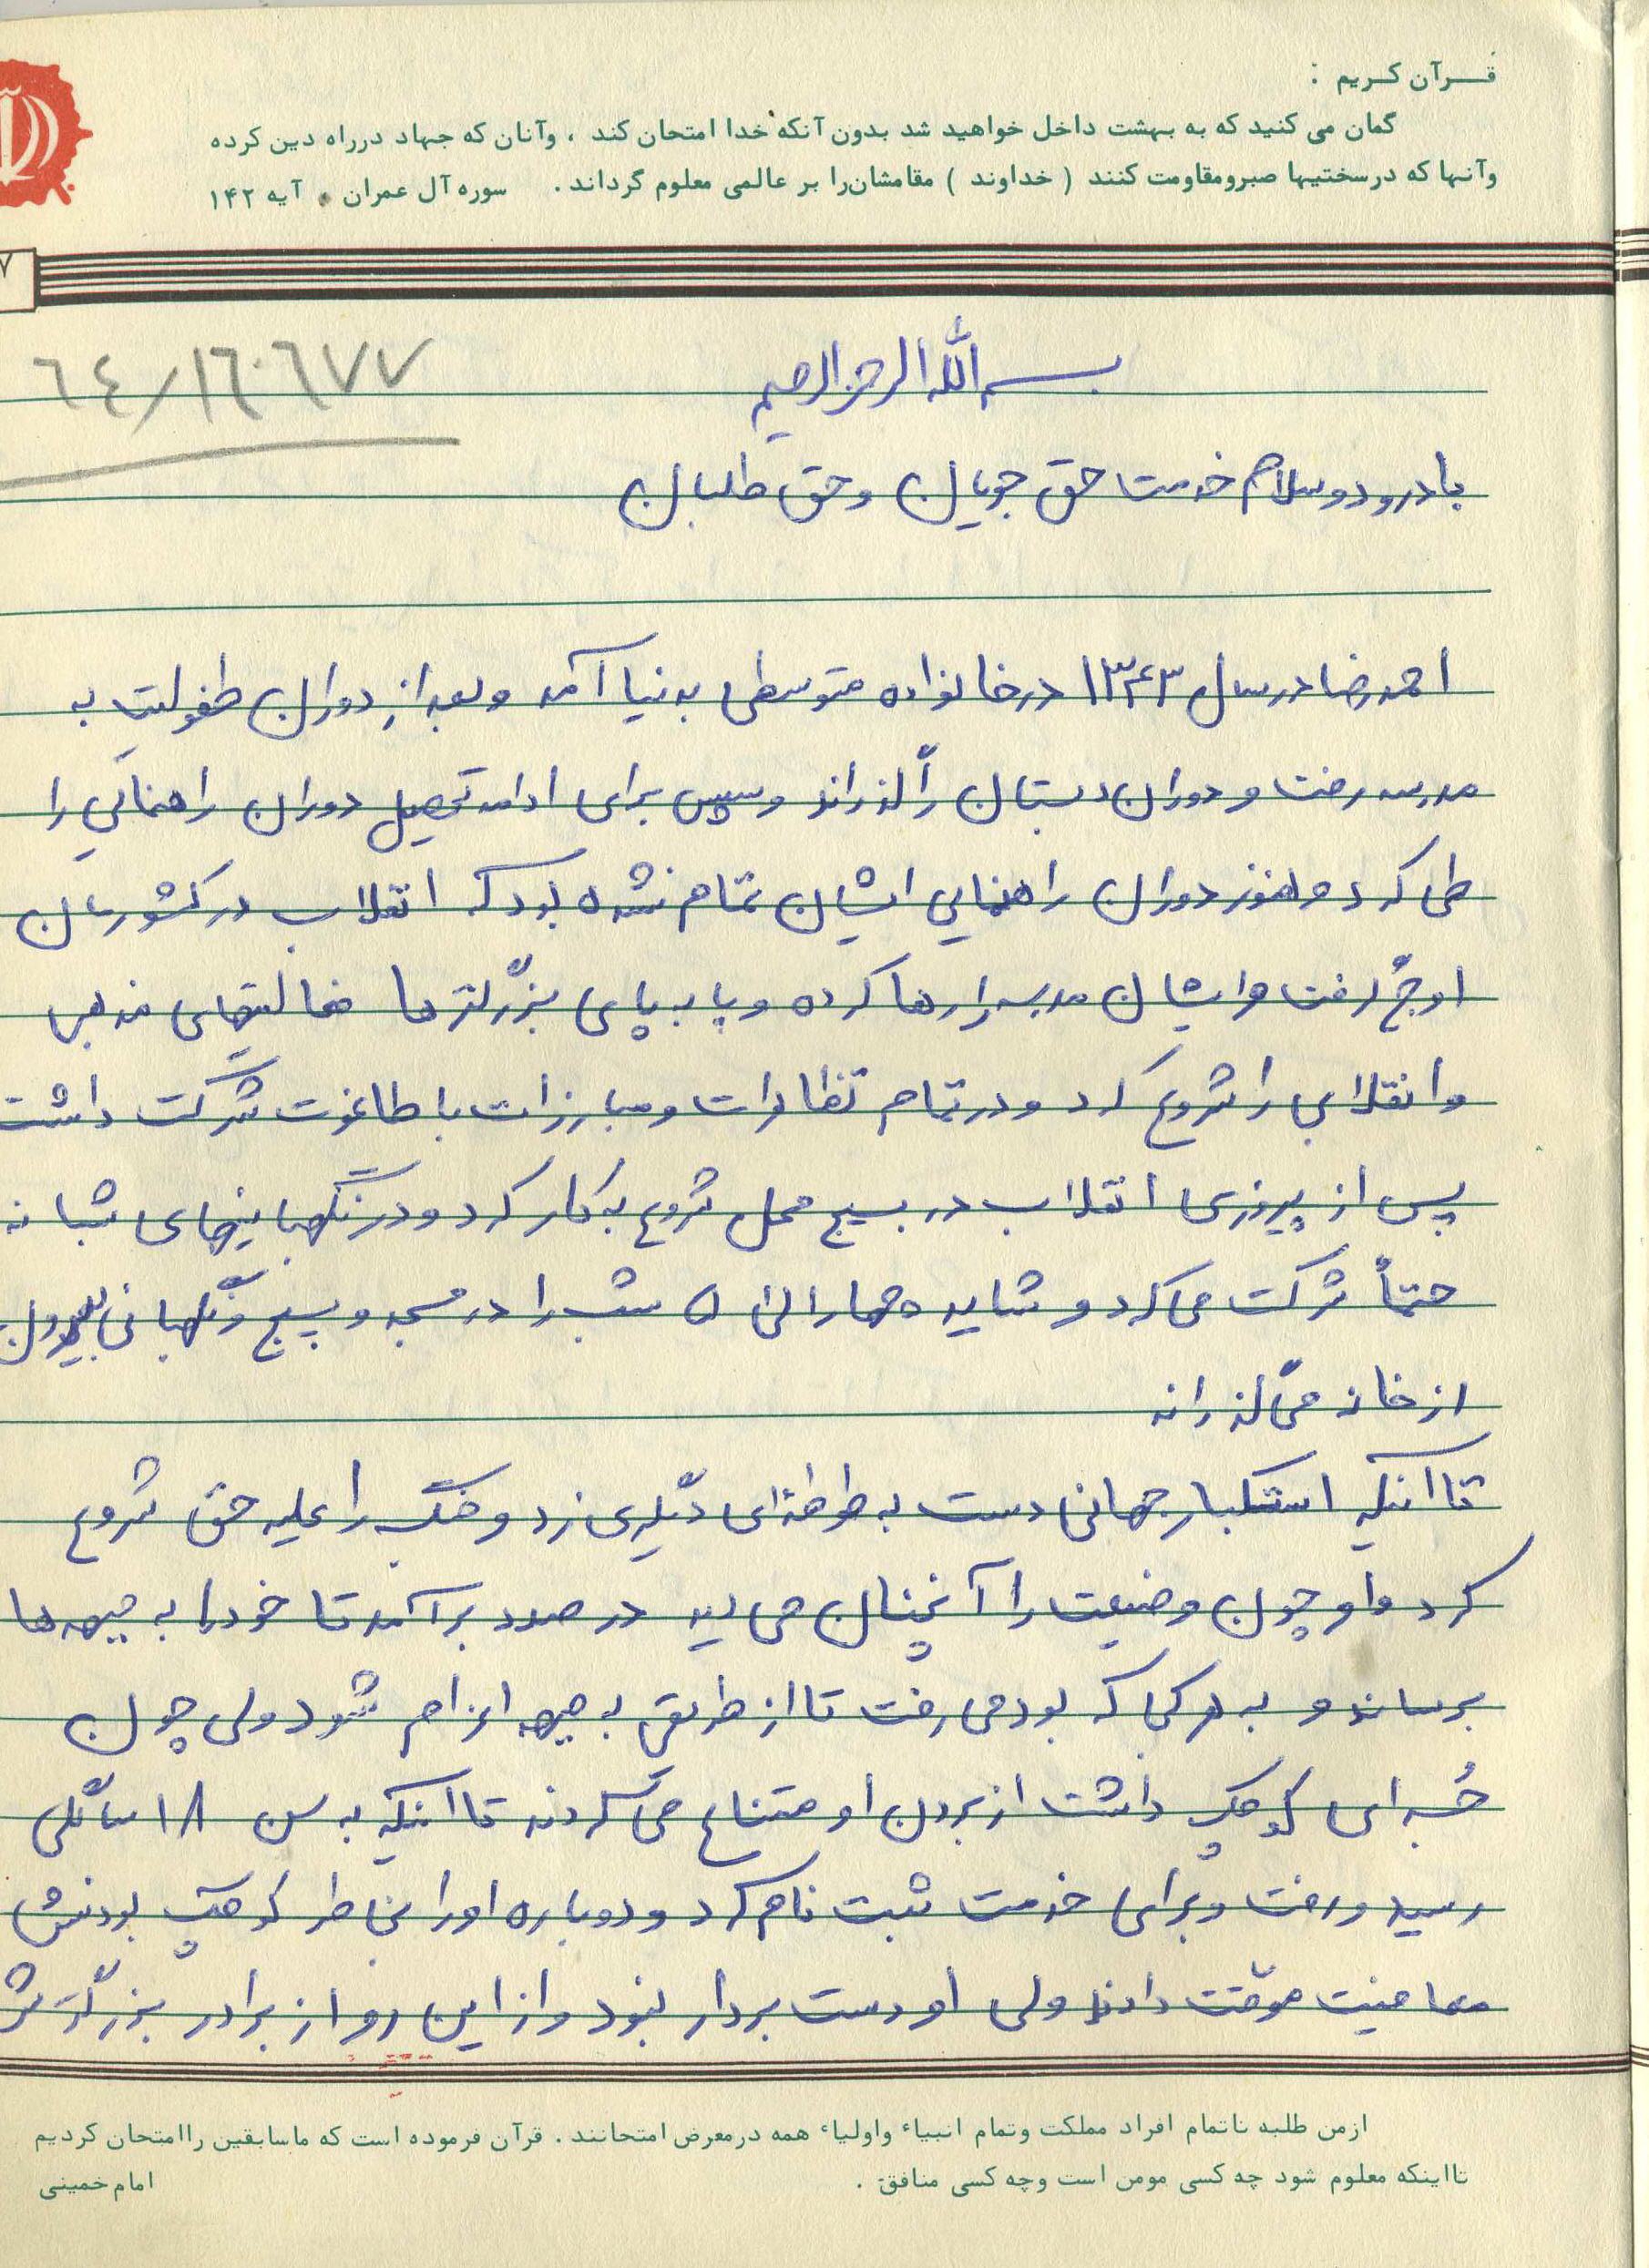 قـــرآن کـریم :
گمان می کنید که به بهشت داخل خواهید شد بدون آنکه خدا امتحان کند ، وآنان که جهاد درراه دین کرده
وآنها که درسختیها صبرومقاومت کنند ( خداوند ) مقامشان‌را بر عالمی معلوم گرداند . سوره آل عمران . آیه ۱۴۲
٦٤/١٦٠٦٧٧
بسم الله الرحمن الرحیم
با درود و سلام خدمت حق جویان و حق طلبان
احمدرضا در سال ۱۳۴۳ در خانواده متوسطی بدنیا آمد و بعد از دوران طفولیت به
مدرسه رفت و دوران دبستان را گذراند و سپس برای ادامه تحصیل دوران راهنمایی را
طی کرد و هنوز دوران راهنمایی ایشان تمام نشده بود که انقلاب در کشورمان
اوج گرفت و ایشان مدرسه را رها کرده و پا به پای بزرگترها فعالیتهای مذهبی
و انقلابی را شروع کرد و در تمام تظاهرات و مبارزات با طاغوت شرکت داشت
پس از پیروزی انقلاب در بسیج محل شروع به کار کرد و در نگهبانیهای شبانه
حتماً شرکت می کرد و شاید چهار الی ۵ شب را در مسجد و بسیج و نگهبانی بیرون
از خانه می گذراند
تا اینکه استکبار جهانی دست به طوطئه‌ای دیگری زد و جنگ را علیه حق شروع
کرد و او چون وضعیت را آنچنان می دید در صدد برآمد تا خود را به جبهه ها
برساند و به هر کجا که بود می رفت تا از طریقی به جبهه اعزام شود ولی چون
جُسه ای کوچک داشت از بردن او متناع می کردند تا اینکه به سن ۱۸ سالگی
رسید و رفت و برای خدمت ثبت نام کرد و دوباره او را بخاطر کوچک بودنش
معافیت موقت دادند ولی او دست بردار نبود و از این رو از برادر بزرگترش
ازمن طلبه تاتمام افراد مملکت وتمام انبیاء واولیاء همه درمعرض امتحانند . قرآن فرموده است که ماسابقین راامتحان کردیم
تااینکه معلوم شود چه کسی مومن است وچه کسی منافق . امام خمینی